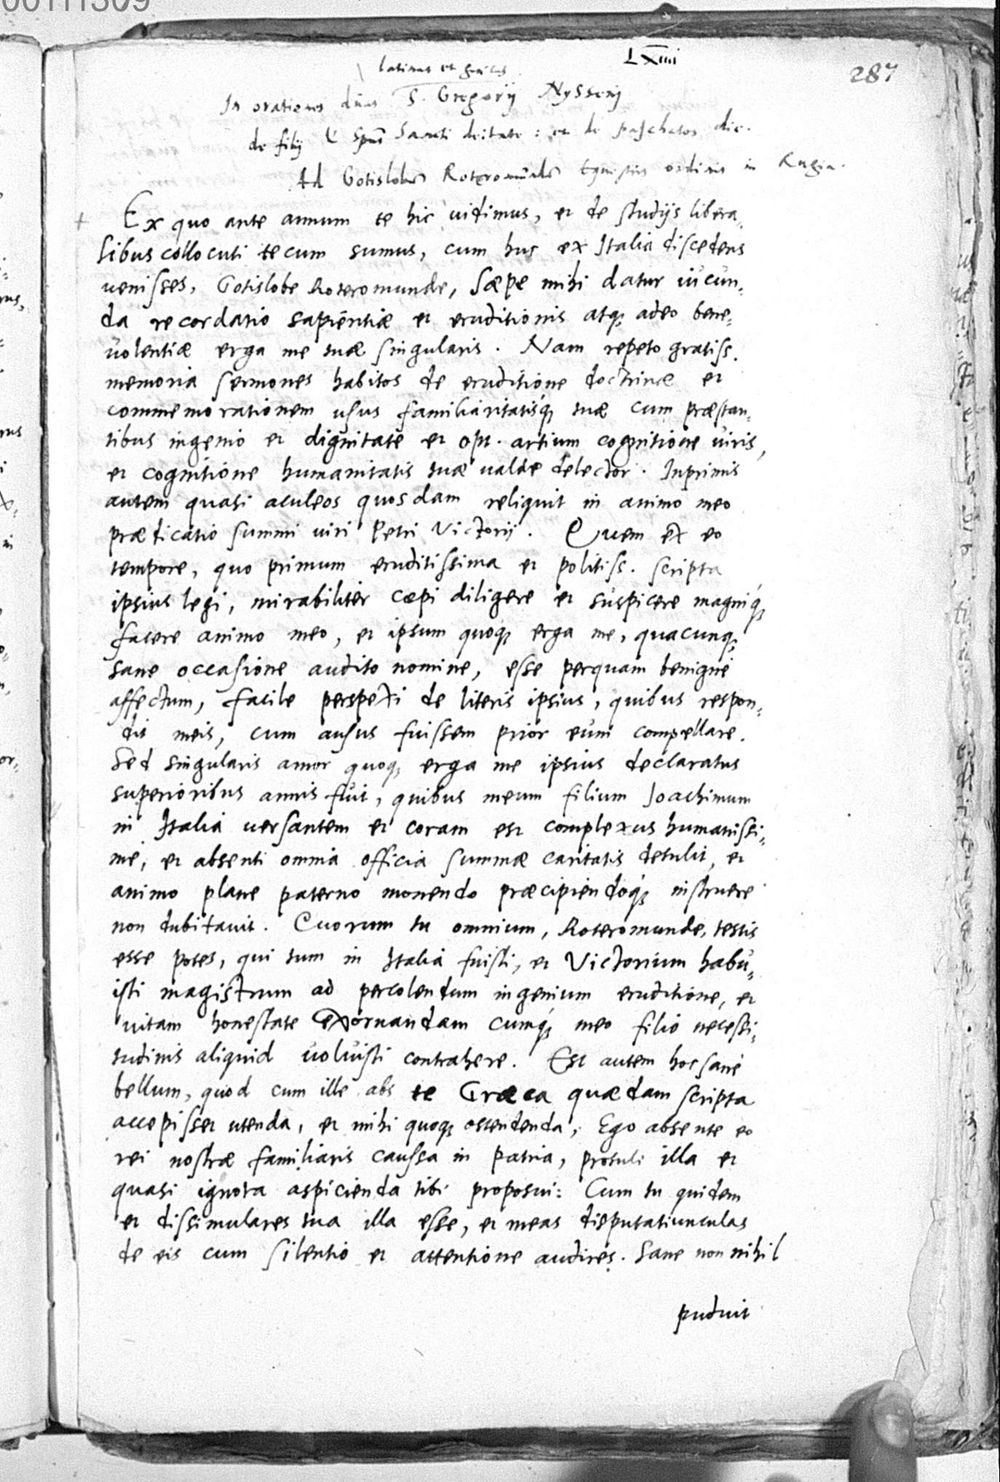 00111309
LXIIII
287
latinas et graecas
In orationes duas S. Gregorij Nysseni
de filij & Spūs Sancti deitate: et de paschatos die.
Ad Gotislobum Roteromundum Equestris ordinis in Rugia.
Ex quo ante annum te hic uidimus, et de studijs libera,
libus collocuti tecum sumus, cum huc ex Italia discedens
uenisses, Gotislobe Roteromunde, sæpe mihi datur iucun,
da recordatio sapientiæ et eruditionis atq; adeo bene,
uolentiæ erga me tuæ singularis. Nam repeto gratiss.
memoria sermones habitos de eruditione doctrinæ et
commemorationem usus familiaritatisq; tuæ cum præstan,
tibus ingenio et dignitate et opt. artium cognitione uiris,
et cognitione humanitatis tuæ ualde delector. Inprimis
autem quasi aculeos quosdam reliquit in animo meo
prædicatio summi uiri Petri Victorij. Quem ex eo
tempore, quo primum eruditissima et politiss. scripta
ipsius legi, mirabiliter cœpi diligere et suspicere magniq;
facere animo meo, et ipsum quoq; erga me, quacunq;
sane occasione audito nomine, esse perquam benigne
affectum, facile perspexi de literis ipsius, quibus respon,
dit meis, cum ausus fuissem prior eum compellare.
Sed singularis amor quoq; erga me ipsius declaratus
superioribus annis fuit, quibus meum filium Joachimum
in Italia uersantem et coram est complexus humanissi,
me, et absenti omnia officia summæ caritatis detulit, et
animo plane paterno monendo præcipiendoq; instruere
non dubitauit. Quorum tu omnium, Roteromunde, testis
esse potes, qui tum in Italia fuisti, et Victorium habu,
isti magistrum ad percolendum ingenium eruditione, et
uitam honestate exornandam cumq; meo filio necessi,
tudinis aliquid uoluisti contrahere. Est autem hoc sane
bellum, quod cum ille abs te Græca quædam scripta
accepisset utenda, et mihi quoq; ostendenda, Ego absente eo
rei nostræ familiaris caussa in patria, protuli illa et
quasi ignota aspicienda tibi proposui: Cum tu quidem
et dissimulares tua illa esse, et meas disputatiunculas
de eis cum silentio et attentione audires. Sane non nihil
puduit